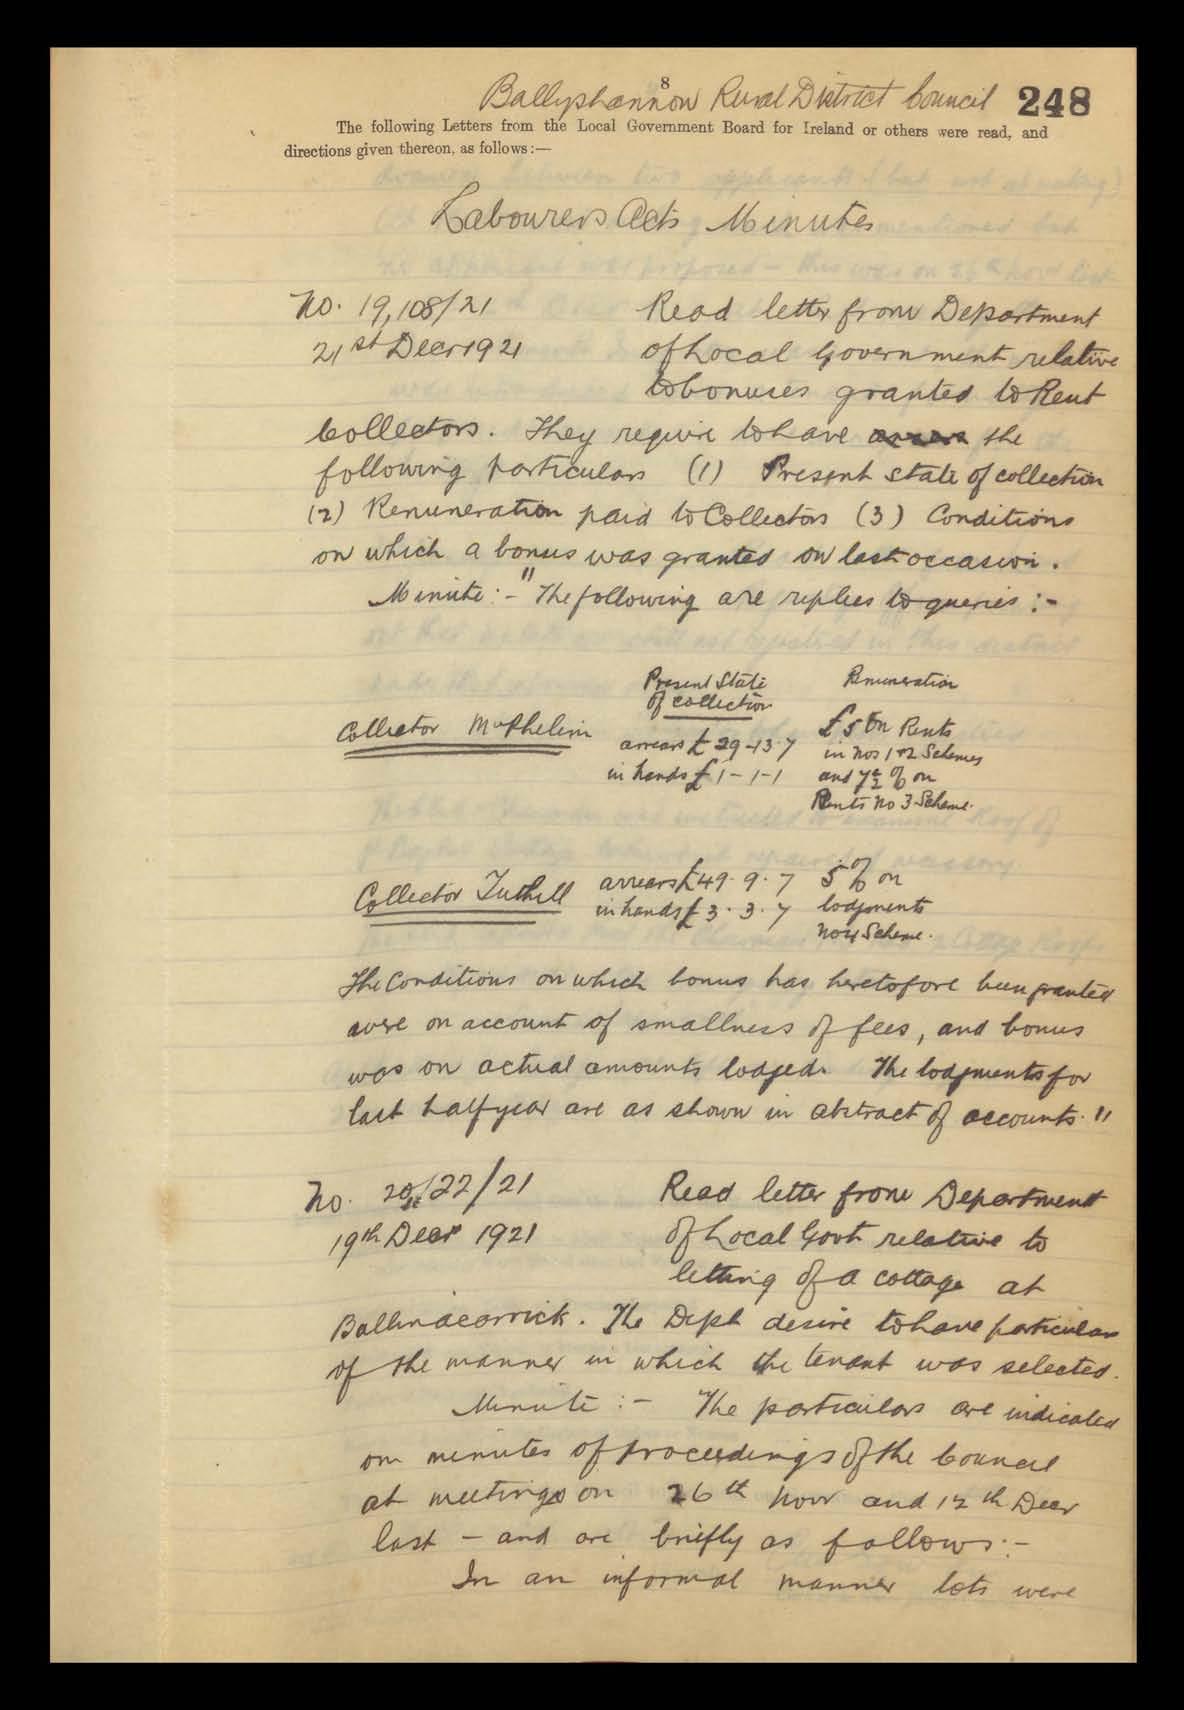 8
Ballyshannon Rural District Council 248
The following Letters from the Local Government Board for Ireland or others were read, and
directions given thereon, as follows:—
Labourers Acts Minutes
No. 19,108/21 Read letter from Department
21st Decr 1921 of Local Government relative
to bonuses granted to Rent
Collectors. They require to have the
following particulars (1) Present State of collection
(2) Renuneration paid to Collectors (3) Conditions
on which a bonus was granted on last occasion.
Minute:- "The following are replies to queries:-
Present State Renuneration
of collection
Collector McPhelim £5 on Rents
arrears £29-13-7 in Nos 1 & 2 Schemes
in hands £1-1-1 and 7½ % on
Rents No 3 Scheme.
Collector Tuthill arrears £49.9.7 5 % on
in hands £3.3.7 lodgments
No 4 Scheme.
The Conditions on which bonus has heretofore been granted
were on account of smallness of fees, and bonus
was on actual amounts lodged. The lodgments for
last half year are as shown in abstract of accounts."
No. /21 Read letter from Department
19th Decr 1921 of Local Govt relative to
letting of a cottage at
Ballinacarrick. The Dept desire to have particulars
of the manner in which the tenant was selected.
Minute:- "The particulars are indicated
on minutes of proceedings of the Council
at meetings on 26th Novr and 12th Decr
last - and are briefly as follows:-
In an informal manner lots were